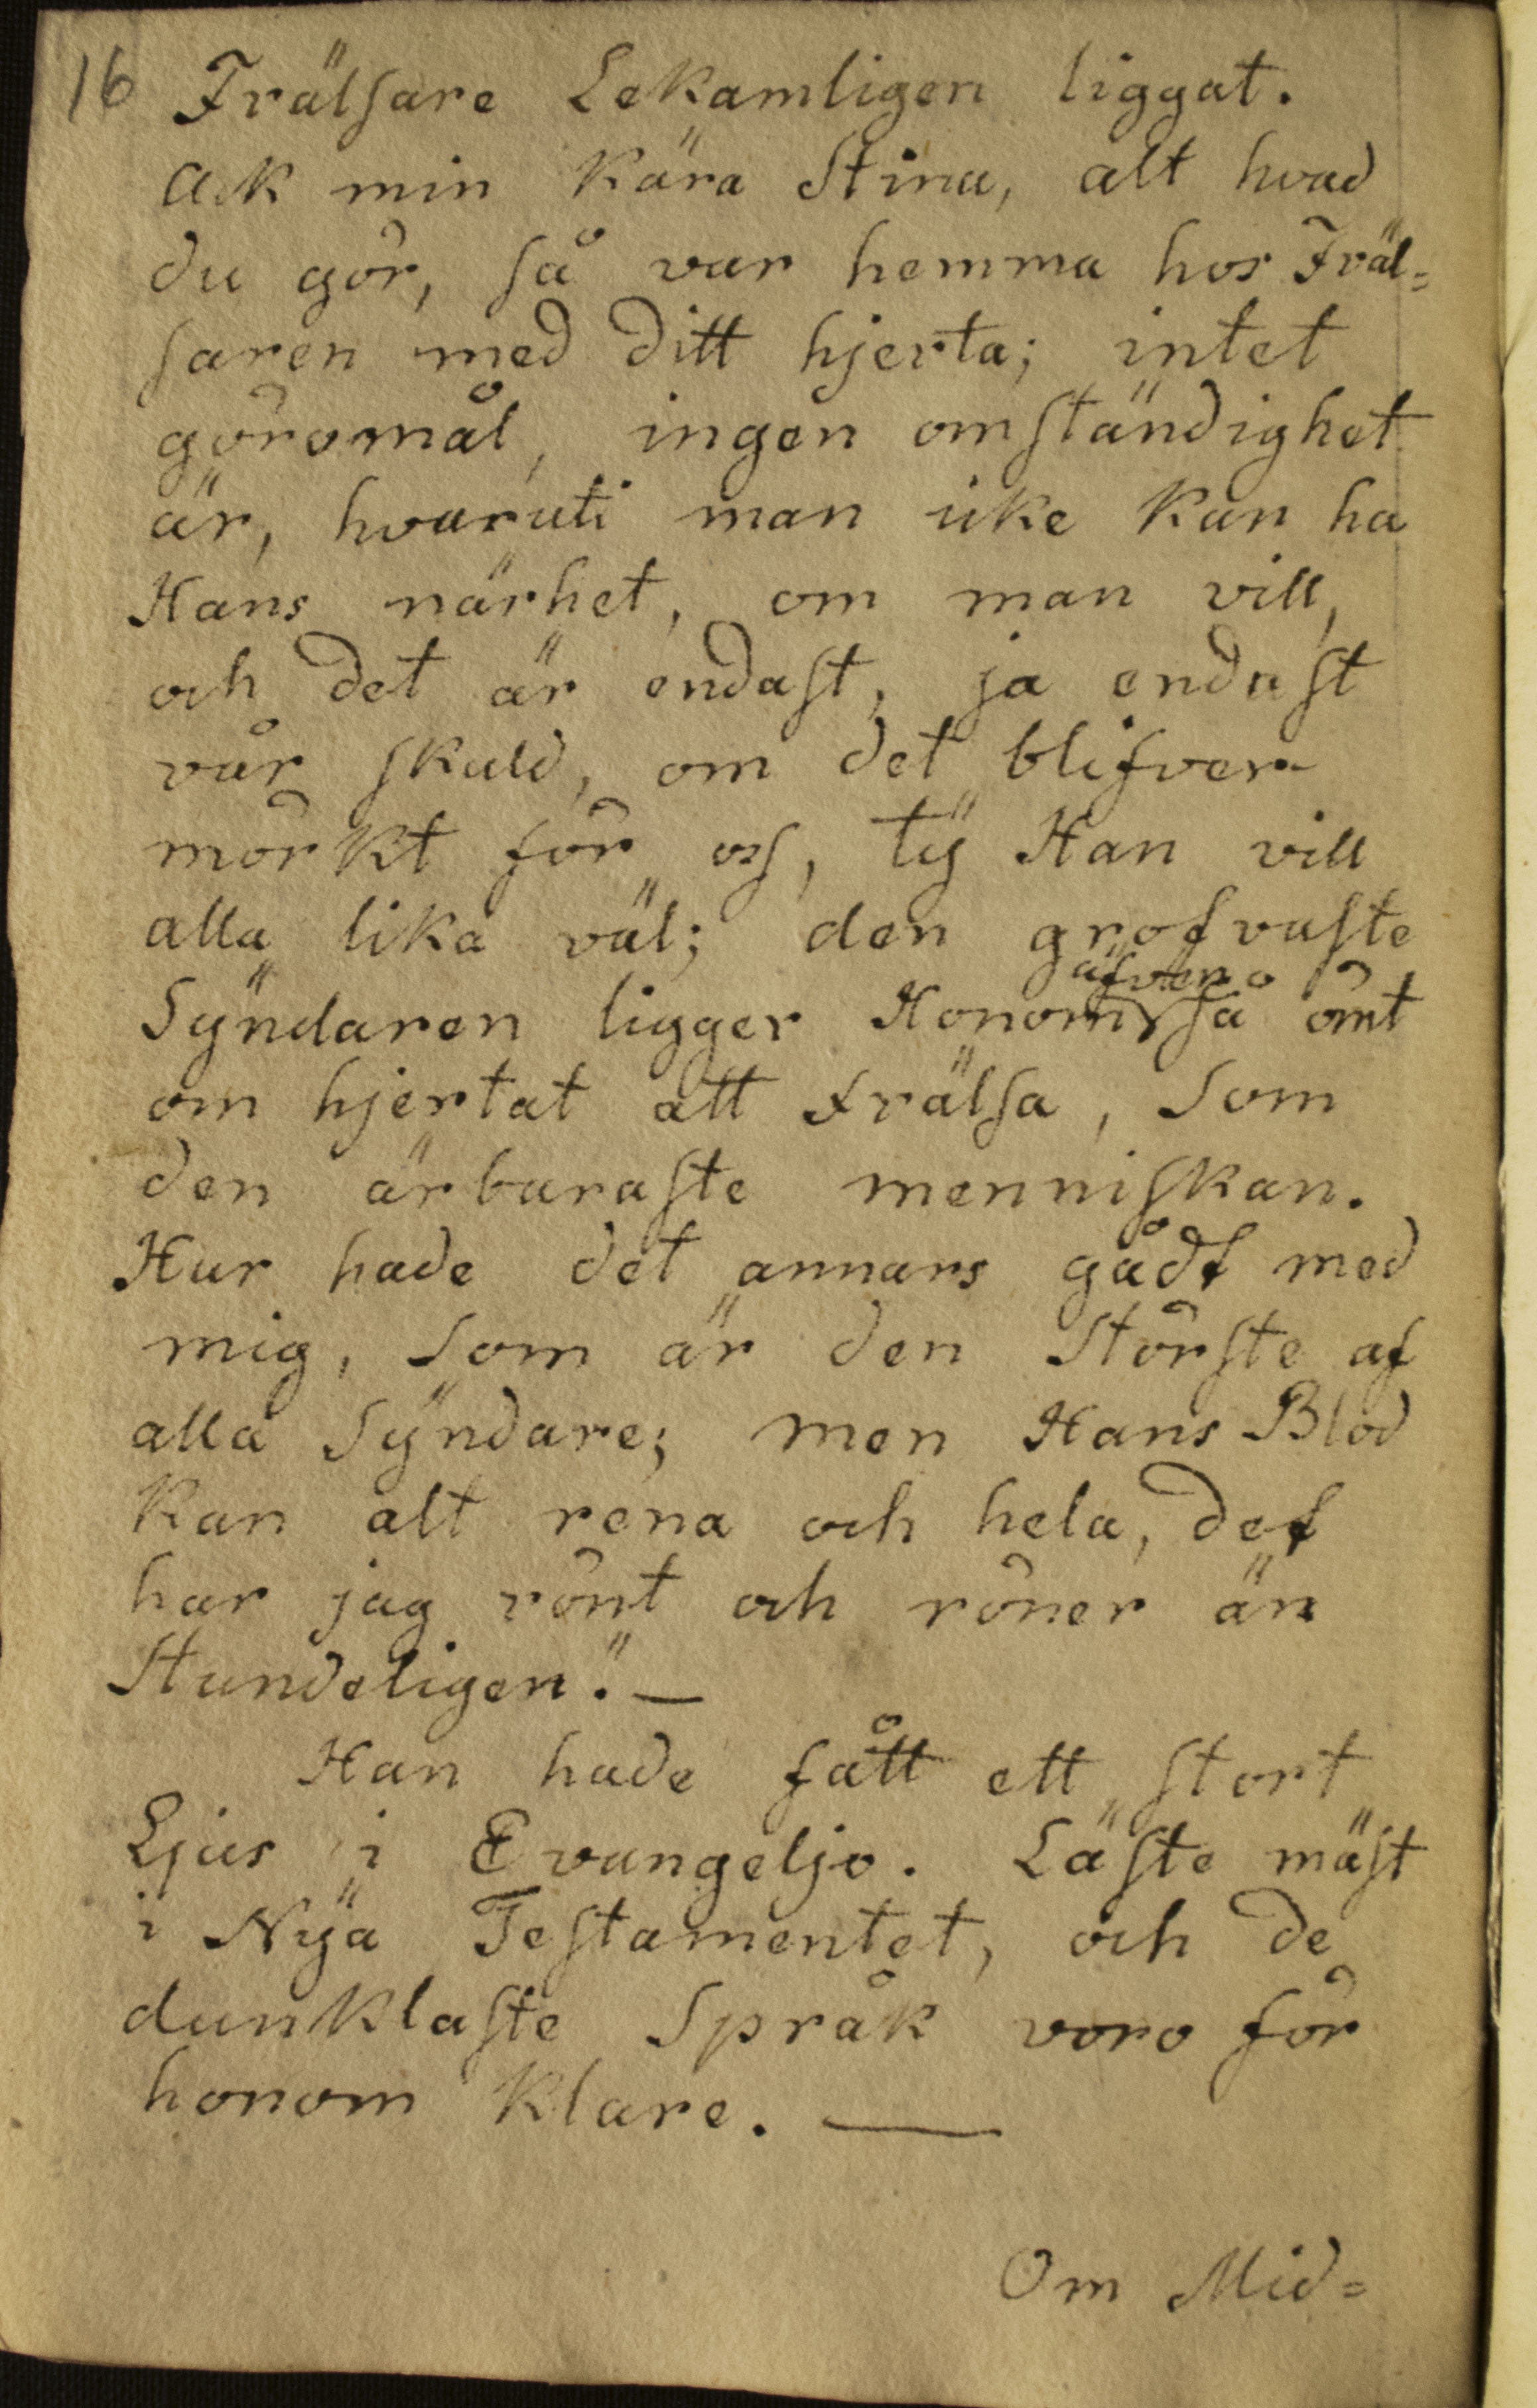 16 Frälsare Lekamligen liggat.
Ack min kära Stina, alt hvad
du gör, så var hemma hos Fräl=
saren med ditt hjerta; intet
göromål, ingen omständighet
är, hvaruti man icke kan ha
Hans närhet, om man vill,
och det är endast, ja endast
vår skuld, om det blifver
mörkt för oss, tÿ Han vill
alla lika väl; den grofvaste
äfven
Sÿndaren ligger Honom så ömt
om hjertat att frälsa, Som
den ärbaraste menniskan.
Hur hade det annars gådt med
mig, Som är den Störste af
alla Sÿndare; men Hans Blod
kan alt rena och hela, det
har jag rönt och röner än
Stundeligen". —
Han hade fått ett stort
Ljus i Evangeljo. Läste mäst
i Nÿa Testamentet, och de
dunklaste Språk voro för
honom klare. —
Om Mid=